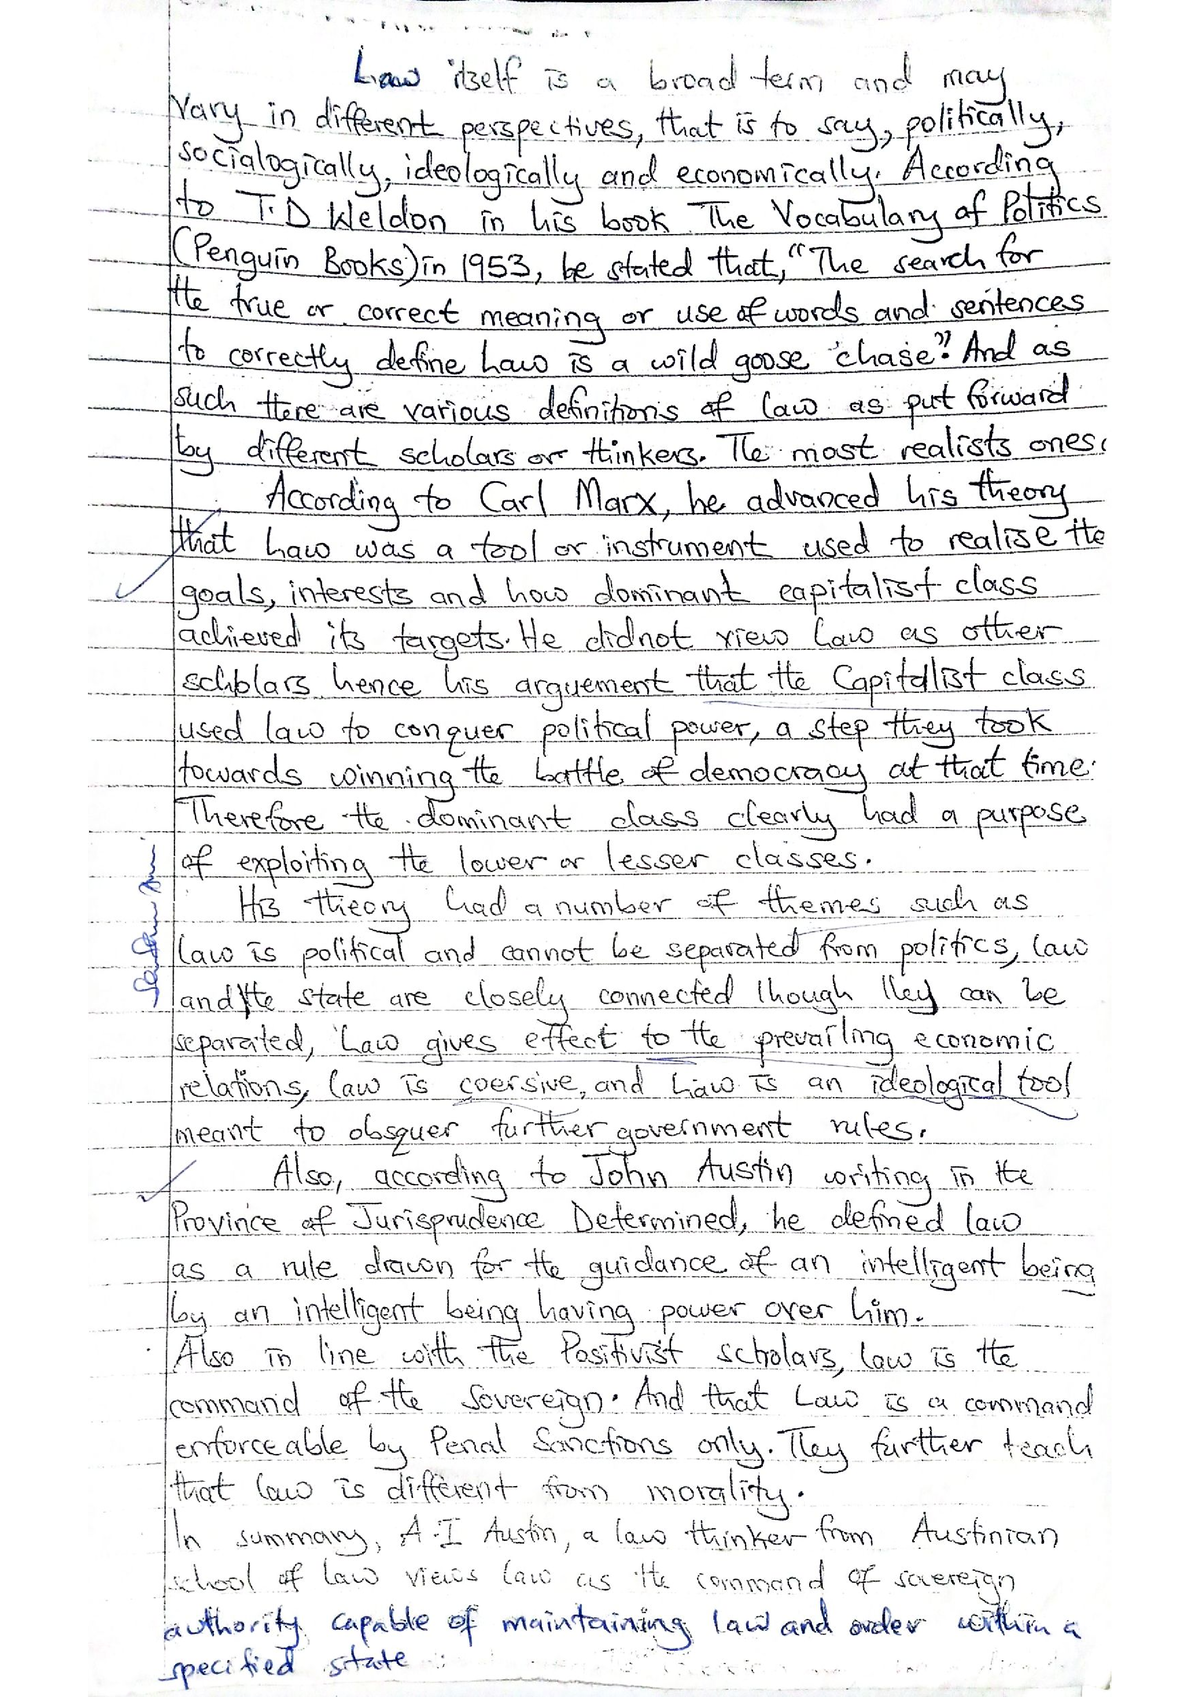 Law itself is a broad term and may
Vary in different perspectives, that is to say, politically,
socialogically, ideologically and economically. According
to T.D Weldon in his book The Vocabulary of Politics
(Penguin Books) in 1953, he stated that, "The search for
the true or correct meaning or use of words and sentences
to correctly define Law is a wild goose chase". And as
such there are various definitions of law as put forward
by different scholars or thinkers. The most realists ones.
According to Carl Marx, he advanced his theory
that Law was a tool or instrument used to realise the
goals, interests and how dominant capitalist class
achieved its targets. He didnot view Law as other
scholars hence his arguement that the Capitalist class
used law to conquer political power, a step they took
towards winning the battle of democracy at that time.
Therefore the dominant class clearly had a purpose
of exploiting the lower or lesser classes.
His theory had a number of themes such as
law is political and cannot be separated from politics, law
and the state are closely connected though they can be
separated, Law gives effect to the prevailing economic
relations, law is coersive, and Law is an ideological tool
meant to obsquer further government rules.
Also, according to John Austin writing in the
Province of Jurisprudence Determined, he defined law
as a rule drawn for the guidance of an intelligent being
by an intelligent being having power over him.
Also in line with the Positivist scholars, law is the
command of the Sovereign. And that Law is a command
enforceable by Penal Sanctions only. They further teach
that law is different from morality.
In summary, A.I Austin, a law thinker from Austinian
school of law views law as the command of sovereign
authority capable of maintaining law and order within a
specified state